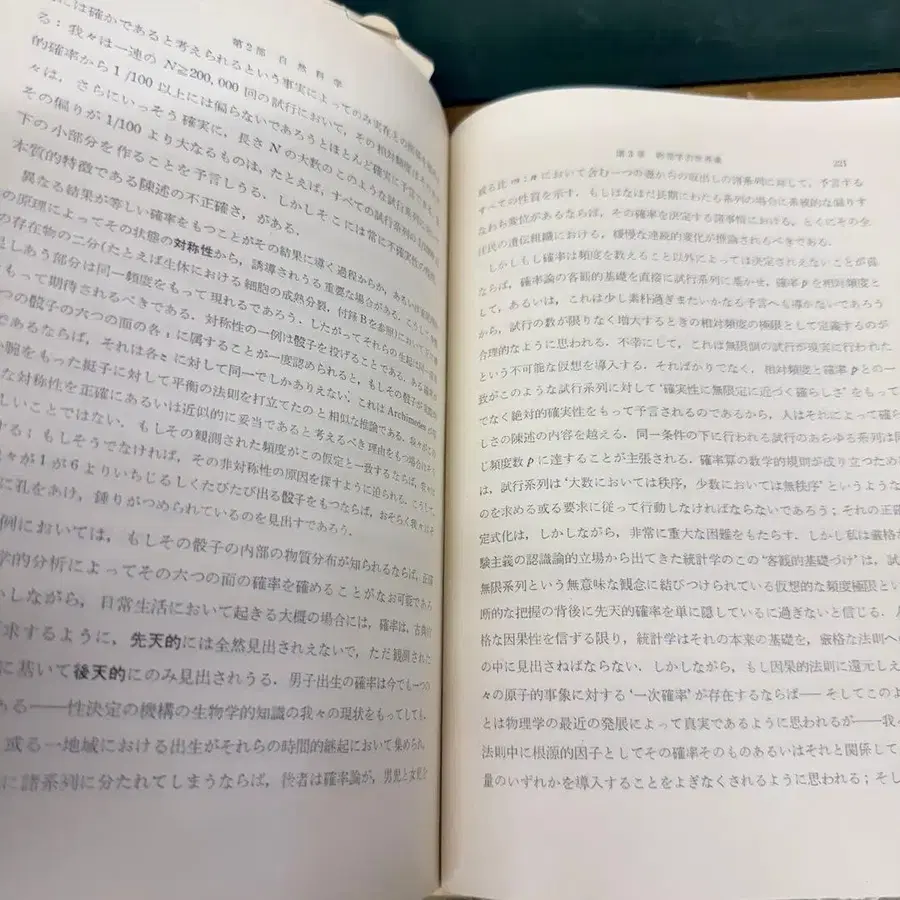 第2部 自然科学
には確かであると考えられるという事実によってのみ実在との
る：我々は一連の N≧200,000 回の試行において，その相対頻度は
的確率から 1/100 以上には偏らないであろうとほとんど確実に予言できる．
々は，さらにいっそう確実に，長さ N の大数のこのような試行系列の
その偏りが 1/100 より大なるものは，たとえば，すべての試行系列の
下の小部分を作ることを予言しうる．しかしそこには常に不確実性の
本質的特徴である陳述の不正確さ，がある．
異なる結果が等しい確率をもつことがその結果に導く過程からか，あるいは
の原理によってその状態の対称性から，誘導されうる重要な場合がある．こうして，
の存在物の二分(たとえば生体における細胞の成熟分裂，付録Bを参照)において，
足しあう部分は同一頻度をもって現れるであろう．したがってそれらの生起は
をもって期待されるべきである．対称性の一例は骰子を投げることである．ある確率が
つの骰子の六つの面の各 i に属することが一度認められると，もしその骰子が
であるならば，それは各 i に対して同一でしかありえない．これは Archimedes が
い腕をもった梃子に対して平衡の法則を打立てたのと相似な推論である．
な対称性を正確にあるいは近似的に妥当であると考えるべき理由をもつ場合は
しいことではない．もしその観測された頻度がこの仮定と一致するならば，
する；もしそうでなければ，その非対称性の原因を探すように迫られる．こうして，
々が1が6よりいちじるしくたびたび出る骰子をもつならば，おそらく我々は
に孔をあけ，錘りがつめられているのを見出すであろう．
例においては，もしその骰子の内部の物質分布が知られるならば，
学的分析によってその六つの面の確率を確めることがなお可能であろ
しかしながら，日常生活において起きる大概の場合には，確率は，
求するように，先天的には全然見出されえないで，ただ観測された
に基いて後天的にのみ見出されうる．男子出生の確率は今でも一つの
ある──性決定の機構の生物学的知識の我々の現状をもってしても．
或る一地域における出生がそれらの時間的継起において集められ，
に諸系列に分たれてしまうならば，使者は確率論が，男児と女児
第3章 物理学的世界像 221
或る比 m：n において含む一つの甕からの取出しの諸系列に対して，予言する
すべての性質を示す．もしはなはだ長期にわたる系列の場合に系統的な偏りす
なわち変位があるならば，その確率を決定する諸事情における，とくにその全
住民の遺伝組織における，緩慢な連続的変化が推論されるべきである．
しかしもし確率は頻度を数えること以外によっては決定されえないことが真
ならば，確率論の客観的基礎を直接に試行系列に基かせ，確率 p を相対頻度と
して，あるいは，これは少し素朴過ぎまたいかなる予言へも導かないであろう
から，試行の数が限りなく増大するときの相対頻度の極限として定義するのが
合理的なように思われる．不幸にして，これは無限個の試行が現実に行われた
という不可能な仮想を導入する．そればかりでなく，相対頻度と確率 p との一
致がこのような試行系列に対して‘確実性に無限定に近づく確らしさ’をもって
でなく絶対的確実性をもって予言されるのであるから，人はそれによって確ら
しさの陳述の内容を越える．同一条件の下に行われる試行のあらゆる系列は同
じ頻度数 p に達することが主張される．確率算の数学的規則が成り立つため
は，試行系列は‘大数においては秩序，少数においては無秩序’というような
のを求める或る要求に従って行動しなければならないであろう；その正確
定式化は，しかしながら，非常に重大な困難をもたらす．しかし私は厳格
験主義の認識論的立場から出てきた統計学のこの‘客観的基礎づけ’は，試
無限系列という無意味な観念に結びつけられている仮想的な頻度極限とい
断的な把握の背後に先天的確率を単に隠しているに過ぎないと信じる．
格な因果性を信ずる限り，統計学はそれの本来の基礎を，厳格な法則へ
の中に見出さねばならない．しかしながら，もし因果的法則に還元しえ
々の原子的事象に対する‘一次確率’が存在するならば── そしてこのよ
とは物理学の最近の発展によって真実であるように思われるが──我
法則中に根源的因子としてその確率そのものあるいはそれと関係して
量のいずれかを導入することをよぎなくされるように思われる；そし